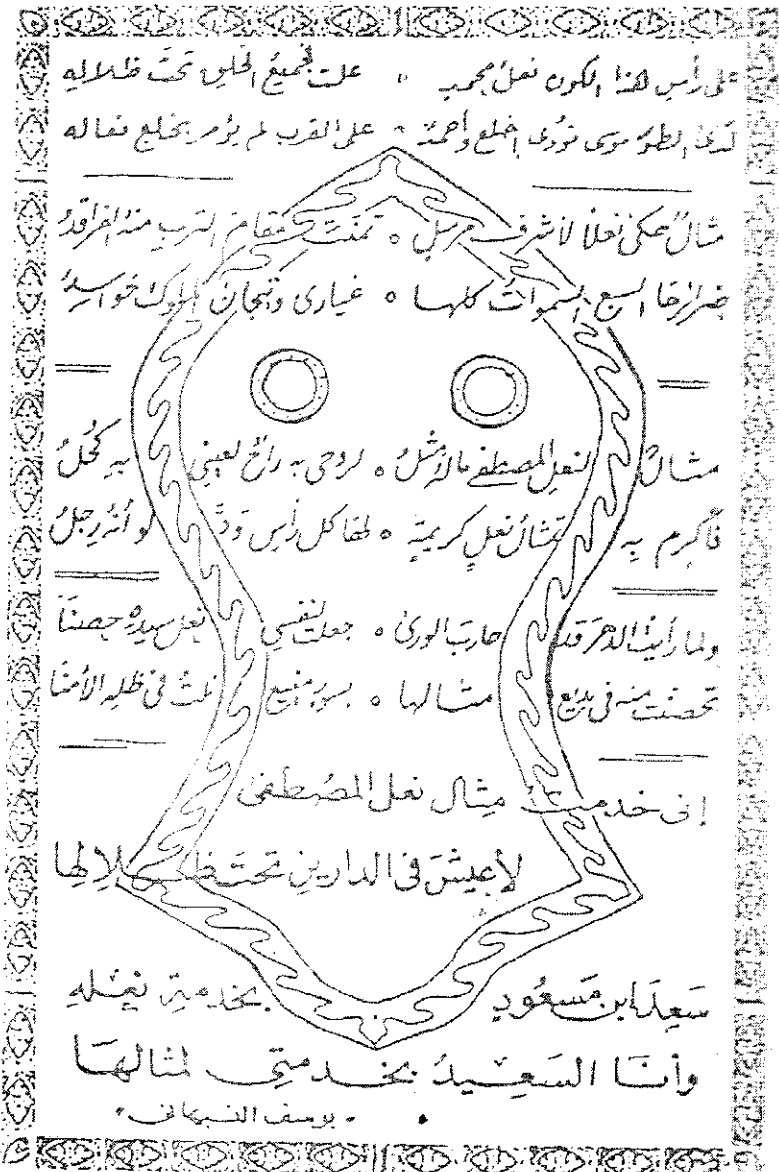 على رأس هذا الكون نعل محمد " علت فجميع الخلق تحت ظلاله
لدى الطور موسى نودي اخلع وأحمد ° على القرب لم يؤمر بخلع نعاله
مثال حكى نعلا لأشرف مرسل ° تمنت مقام الترب منه الفراقد
ضرائرها السبع السموات كلها ° غيارى وتيجان الملوك حواسد
مثال لنعل المصطفى ماله مثل ° لروحي به راح لعيني به كحل
فأكرم به تمثال نعل كريمة ° لها كل رأس ود لو أنه رجل
ولما رأيت الدهر قد حارب الورى ° جعلت لنفسي نعل سيده حصنا
تحصنت منه في بديع مثالها ° بسور منيع نلت في ظله الأمنا
إني خدمت مثال نعل المصطفى
لأعيش في الدارين تحت ظلالها
سعد ابن مسعود بخدمة نعله
وأنا السعيد بخدمتي لمثالها
• يوسف النبهاني •